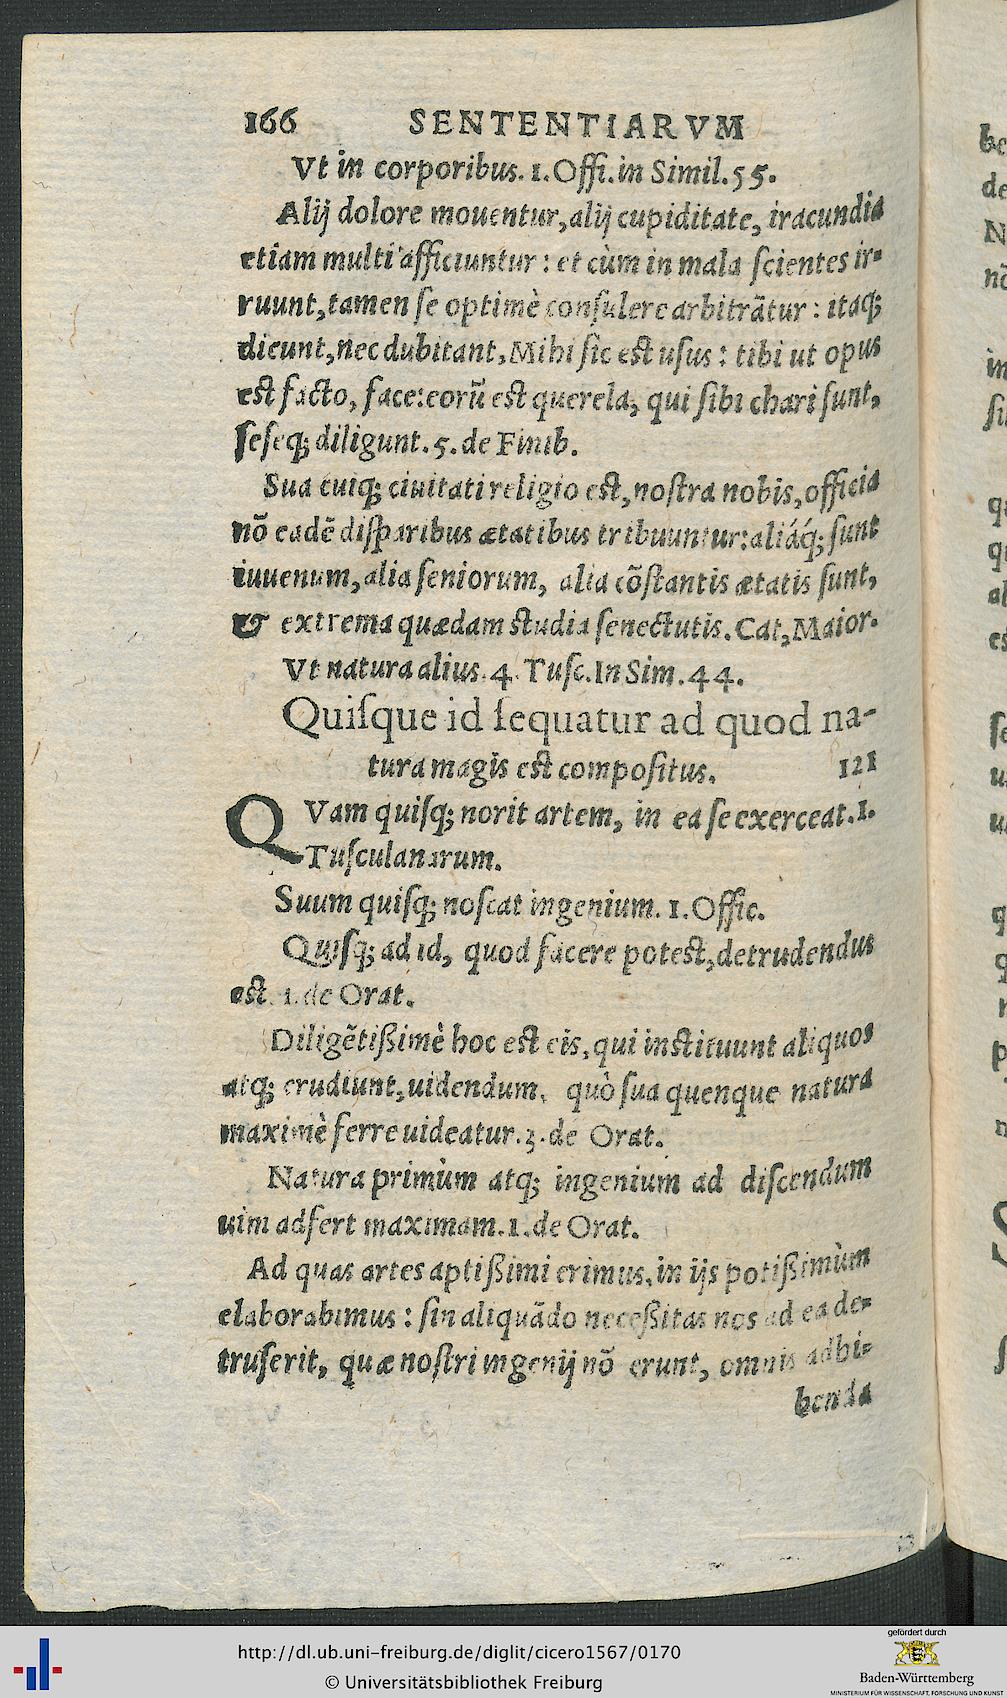 166 SENTENTIARVM
Vt in corporibus. 1. Offi. in Simil. 55.
Alij dolore mouentur, alij cupiditate, iracundia
etiam multi afficiuntur : et cùm in mala ſcientes ir-
ruunt, tamen ſe optimè conſulere arbitrãtur : itaq;
dicunt, nec dubitant, Mihi ſic eſt uſus : tibi ut opus
eſt facto, face: eorũ eſt querela, qui ſibi chari ſunt,
ſeſeq; diligunt. 5. de Finib.
Sua cuiq; ciuitati religio eſt, noſtra nobis, officia
nõ eadẽ diſparibus ætatibus tribuuntur: aliáq́; ſunt
iuuenum, alia ſeniorum, alia cõſtantis ætatis ſunt,
& extrema quædam ſtudia ſenectutis. Cat, Maior.
Vt natura alius. 4. Tuſc. In Sim. 44.
Quiſque id ſequatur ad quod na-
tura magis eſt compoſitus. 121
QVam quiſq; norit artem, in ea ſe exerceat. 1.
Tuſculanarum.
Suum quiſq; noſcat ingenium. 1. Offic.
Quiſq; ad id, quod facere poteſt, detrudendus
eſt. 1. de Orat.
Diligẽtißimè hoc eſt eis, qui inſtituunt aliquos
atq; erudiunt, uidendum, quò ſua quenque natura
maximè ferre uideatur. 3. de Orat.
Natura primùm atq; ingenium ad diſcendum
uim adfert maximam. 1. de Orat.
Ad quas artes aptißimi erimus, in ijs potißimùm
elaborabimus : ſin aliquãdo neceßitas nos ad ea de-
truſerit, quæ noſtri ingenij nõ erunt, omnis adhi-
benda
http://dl.ub.uni-freiburg.de/diglit/cicero1567/0170
© Universitätsbibliothek Freiburg
gefördert durch
Baden-Württemberg
MINISTERIUM FÜR WISSENSCHAFT, FORSCHUNG UND KUNST